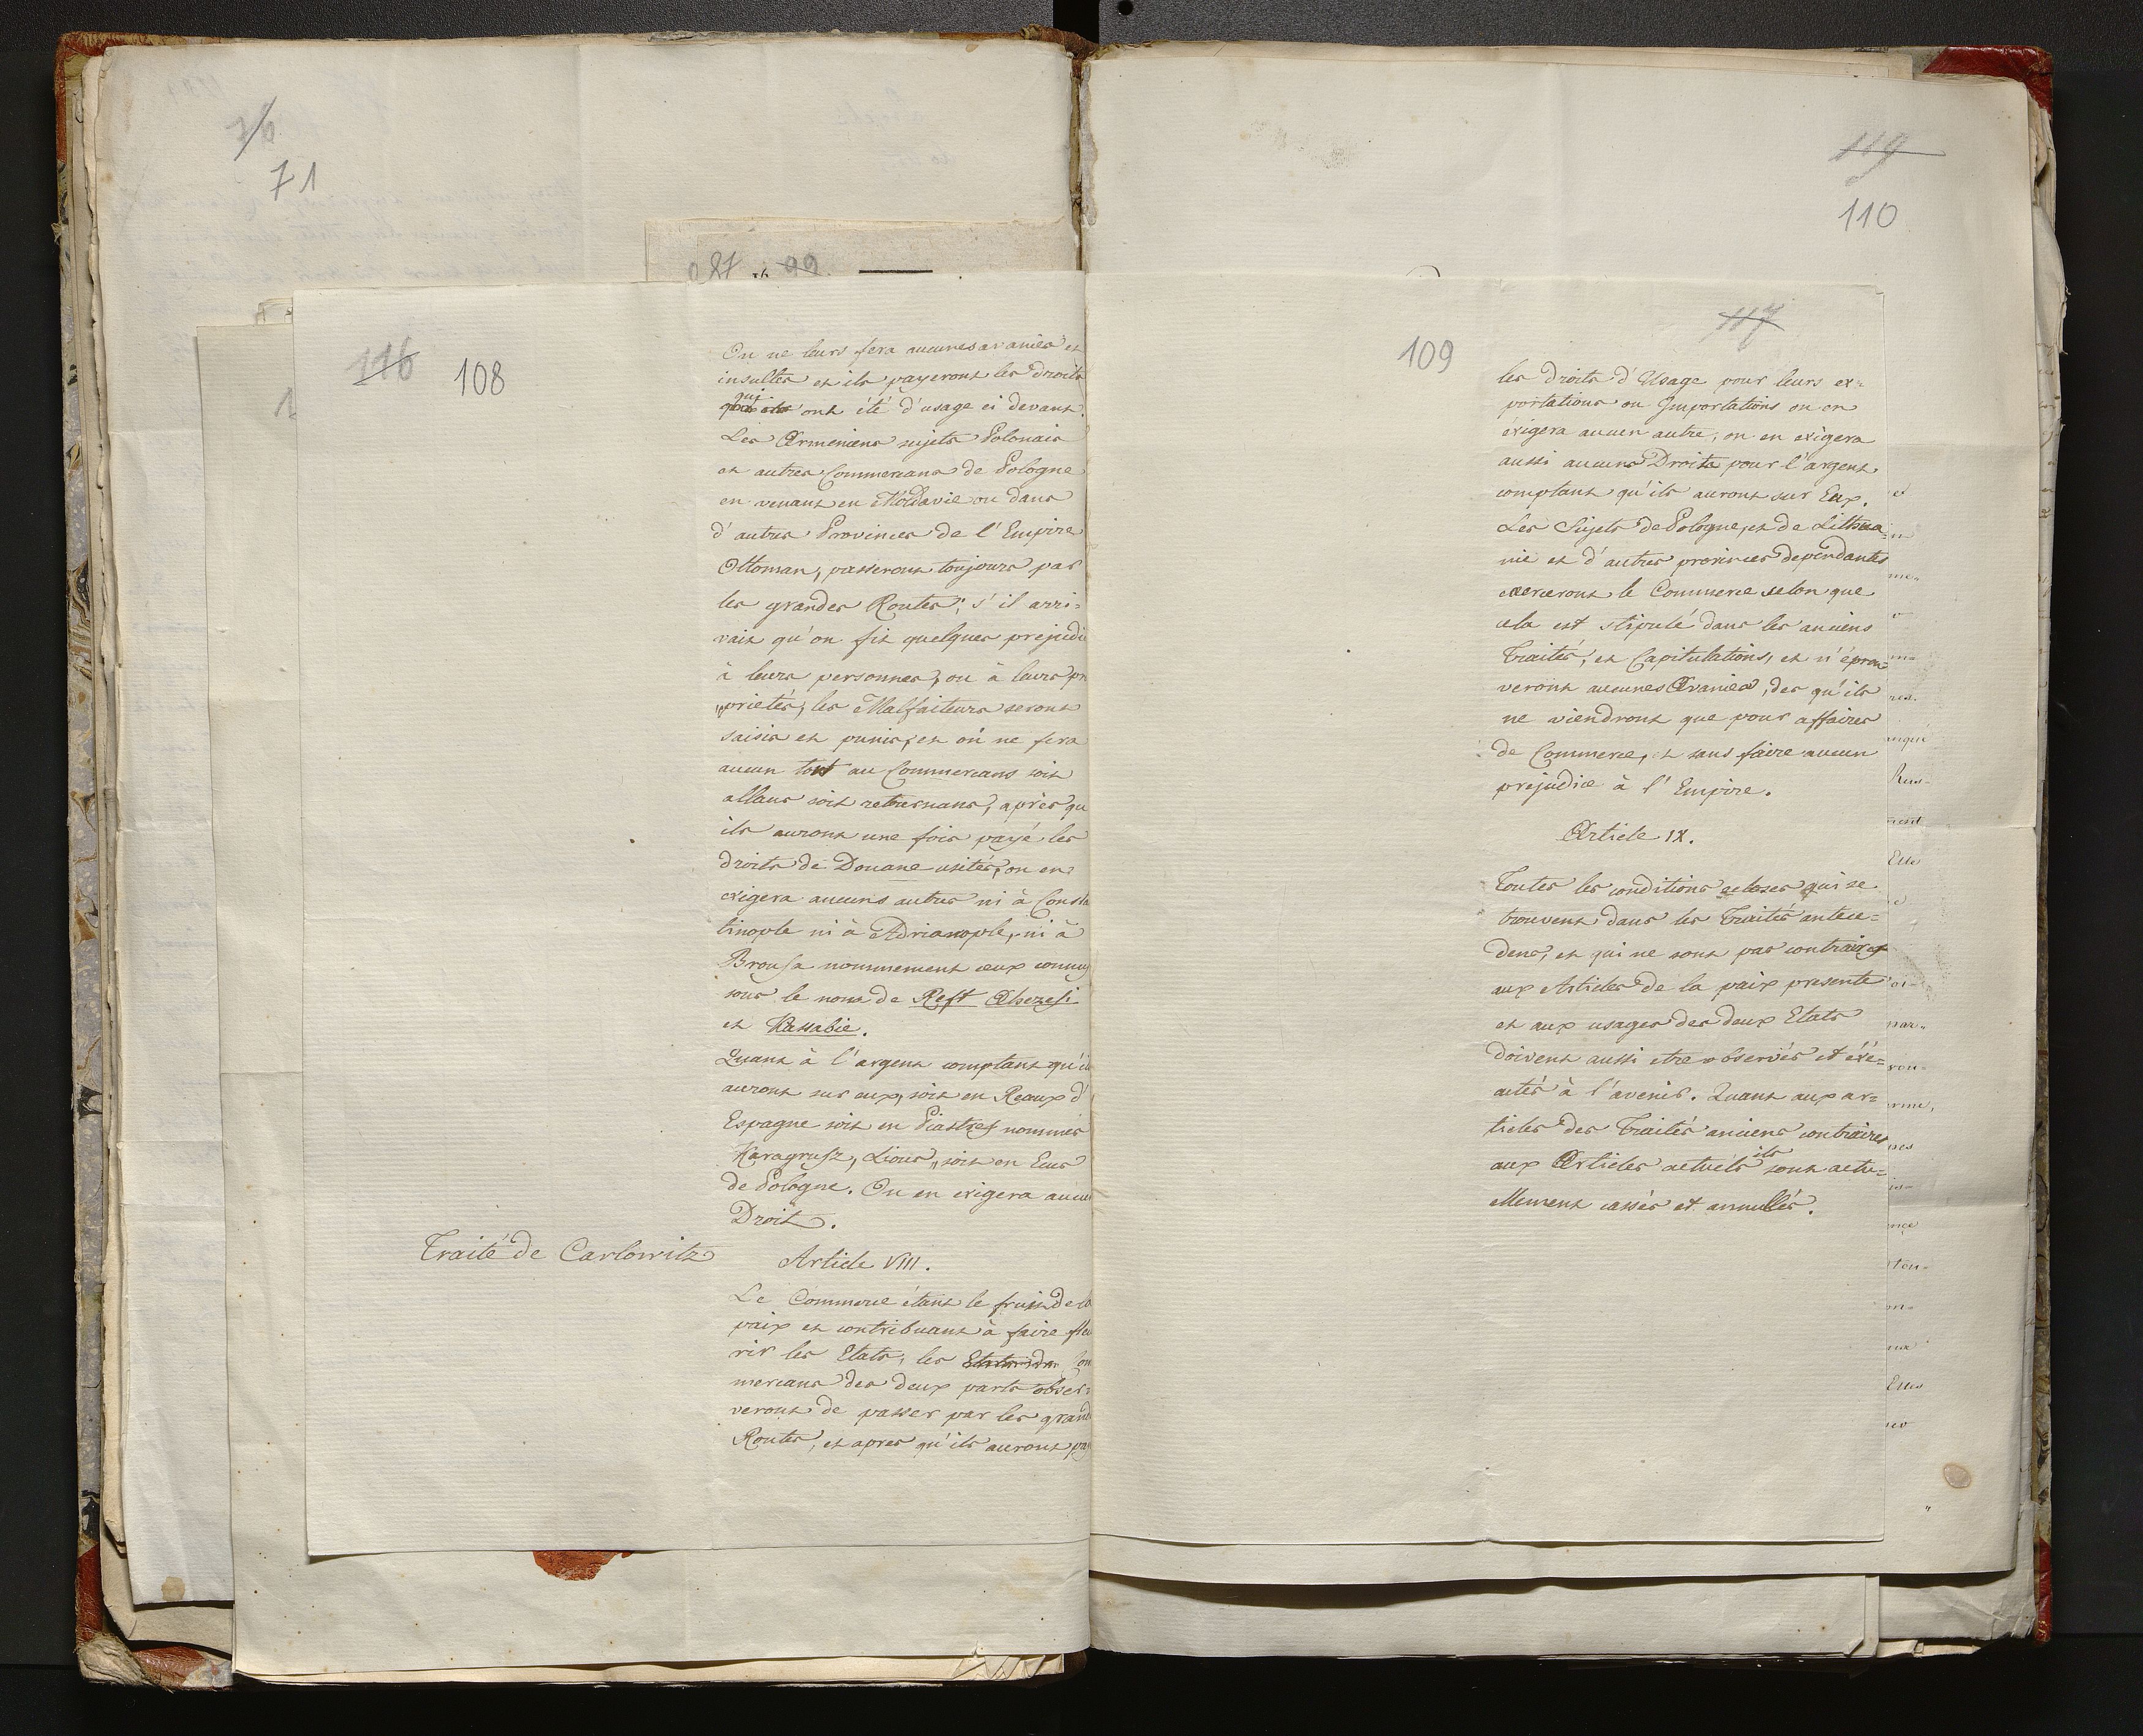 76
71
87 16 99
116 108
On ne leurs fera aucunes avanies et
insultes et ils payeront les droits
qui
ont été d'usage ci devant.
Les Armeniens sujets Polonais
et autres Commercans de Pologne
en venant en Moldavie ou dans
d'autres Provinces de l'Empire
Ottoman, passeront toujours par
les grandes Routes; s'il arri=
vait qu'on fit quelques prejudi
à leurs personnes, ou à leurs pr
"prietés, les Malfaiteurs seront
saisis et punis, et on ne fera
aucun tort au Commercans soit
allans soit retournans, après qu
ils auront une fois payé les
droits de Douane usités, on en
exigera aucuns autres ni à Consta
tinople ni à Adrianople, ni à
Brousa nommement ceux connus
sous le nom de Reft Akezesi
et Kassabie.
Quant à l'argent comptant qu'il
auront sur eux, soit en Reaux d'
Espagne soit en Piastres nommés
Karagrusz, Lions, soit en Ecus
de Pologne. On en exigera aucu
Droit.
Traité de Carlowitz
Article VIII.
Le Commerce étant le fruit de la
paix et contribuant à faire fleu
rir les Etats, les Etats des Com
mercans des deux parts obser=
veront de passer par les grand
Routes, et apres qu'ils auront pay
119
110
117
109
les droits d'Usage pour leurs ex=
portations ou Importations on en
exigera aucun autre; on en exigera
aussi aucuns Droits pour l'argent
comptant qu'ils auront sur Eux.
Les Sujets de Pologne, et de Lithua=
nie et d'autres provinces dependantes
exerceront le Commerce selon que
cela est stipulé dans les anciens
Traités, et Capitulations, et n'éprou=
veront aucunes Avanies, des qu'ils
ne viendront que pour affaires
de Commerce, et sans faire aucun
prejudice à l'Empire.
Article IX.
Toutes les conditions et choses qui se
trouvent dans les Traités antece=
dens, et qui ne sont pas contraires
aux Articles de la paix presente
et aux usages des deux Etats
doivent aussi etre observés et éxe=
cutés à l'avenir. Quant aux ar=
ticles des Traités anciens contraires
aux Articles actuels ils sont actu=
ellement cassés et annullés.